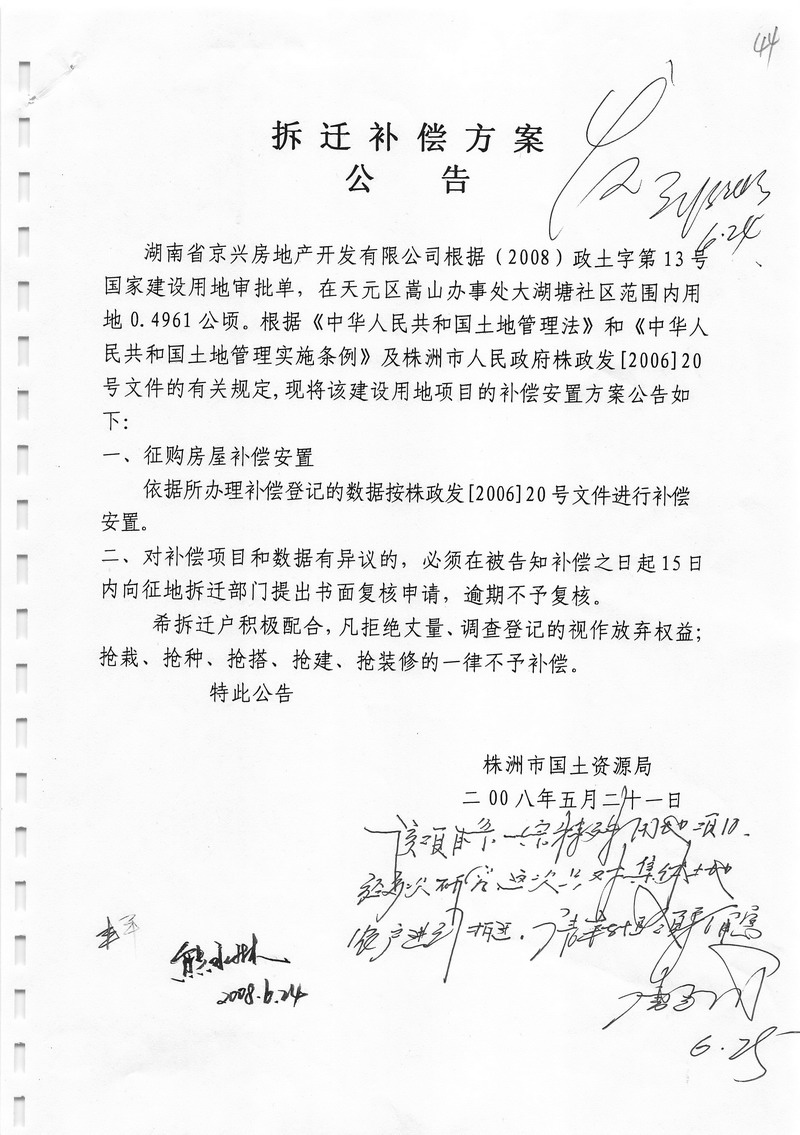 44
拆迁补偿方案
公 告
6.24
湖南省京兴房地产开发有限公司根据(2008)政土字第13号
国家建设用地审批单，在天元区嵩山办事处大湖塘社区范围内用
地0.4961公顷。根据《中华人民共和国土地管理法》和《中华人
民共和国土地管理实施条例》及株洲市人民政府株政发[2006]20
号文件的有关规定,现将该建设用地项目的补偿安置方案公告如
下：
一、征购房屋补偿安置
依据所办理补偿登记的数据按株政发[2006]20号文件进行补偿
安置。
二、对补偿项目和数据有异议的，必须在被告知补偿之日起15日
内向征地拆迁部门提出书面复核申请，逾期不予复核。
希拆迁户积极配合,凡拒绝丈量、调查登记的视作放弃权益;
抢栽、抢种、抢搭、抢建、抢装修的一律不予补偿。
特此公告
株洲市国土资源局
二00八年五月二十一日
该项目系一宗
经多次研究,这次只对集体土地
农户进行拆迁.
2008.6.24
6.25